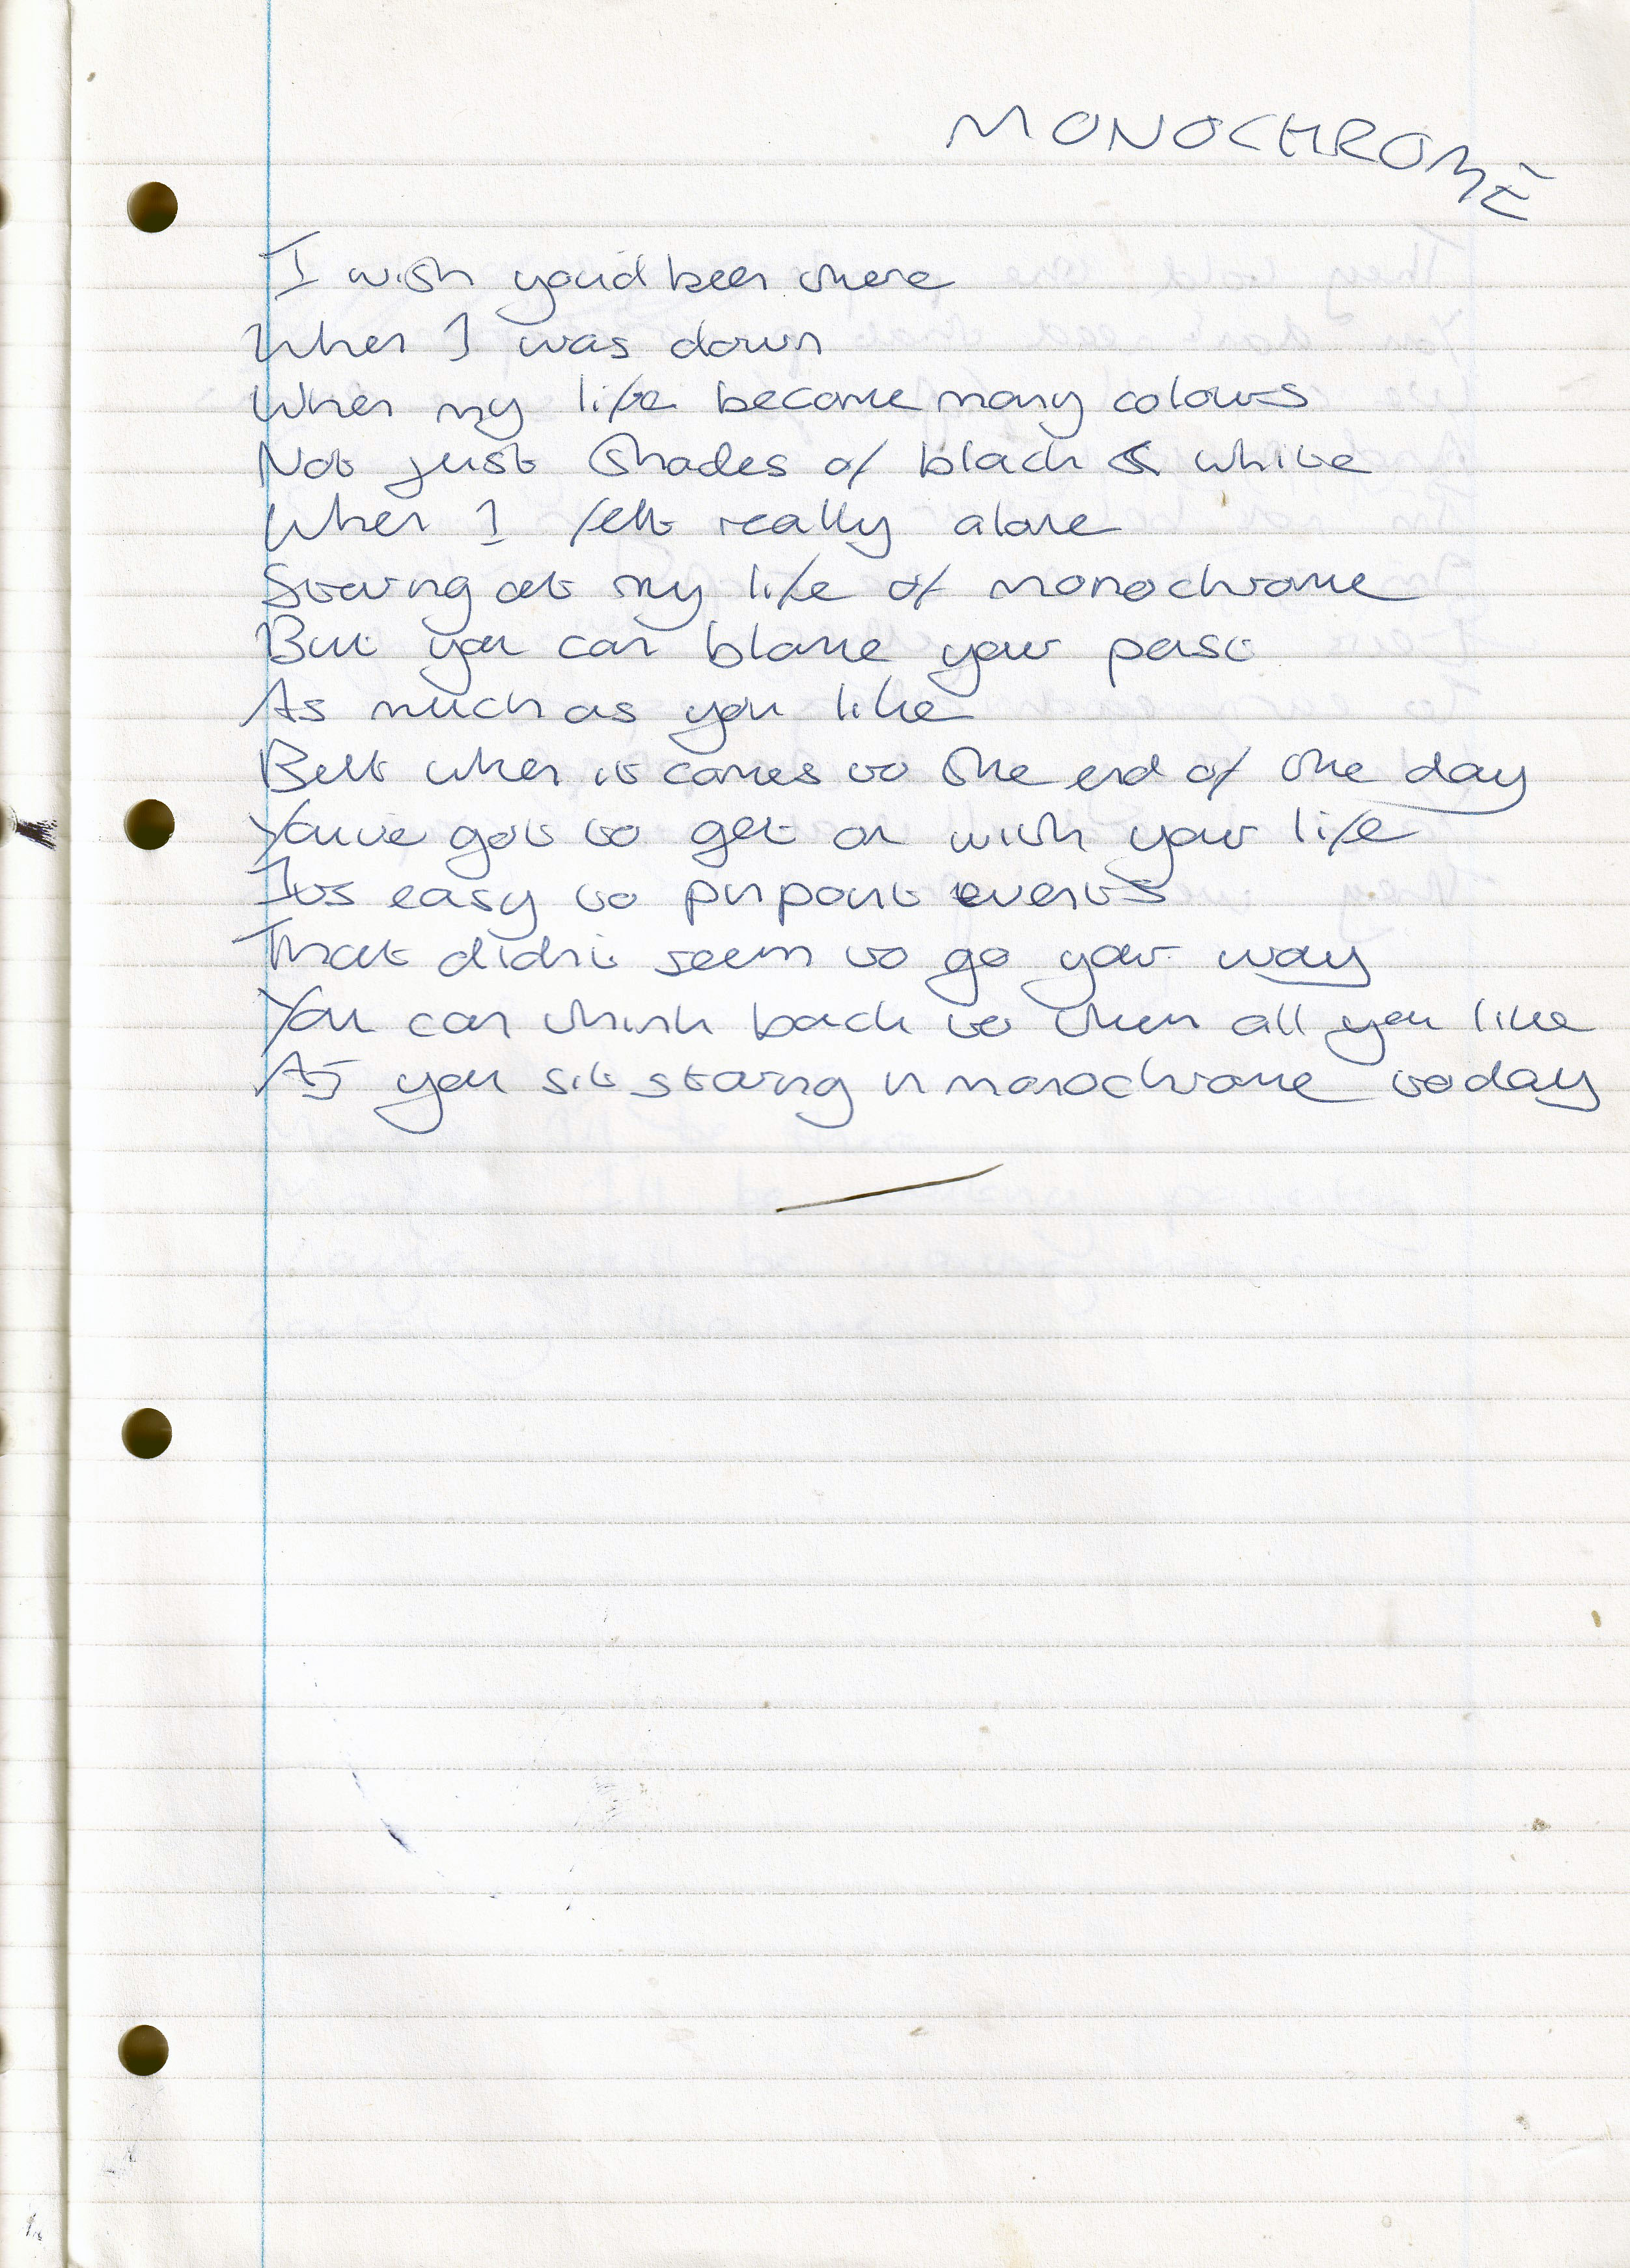 MONOCHROME
I wish you'd been there
When I was down
When my life became many colours
Not just shades of black & white
When I felt really alone
Staring at my life of monochrome
But you can blame your past
As much as you like
But when it comes to the end of the day
You've got to get on with your life
Its easy to pinpoint events
That didn't seem to go your way
You can think back to them all you like
As you sit staring in monochrome today